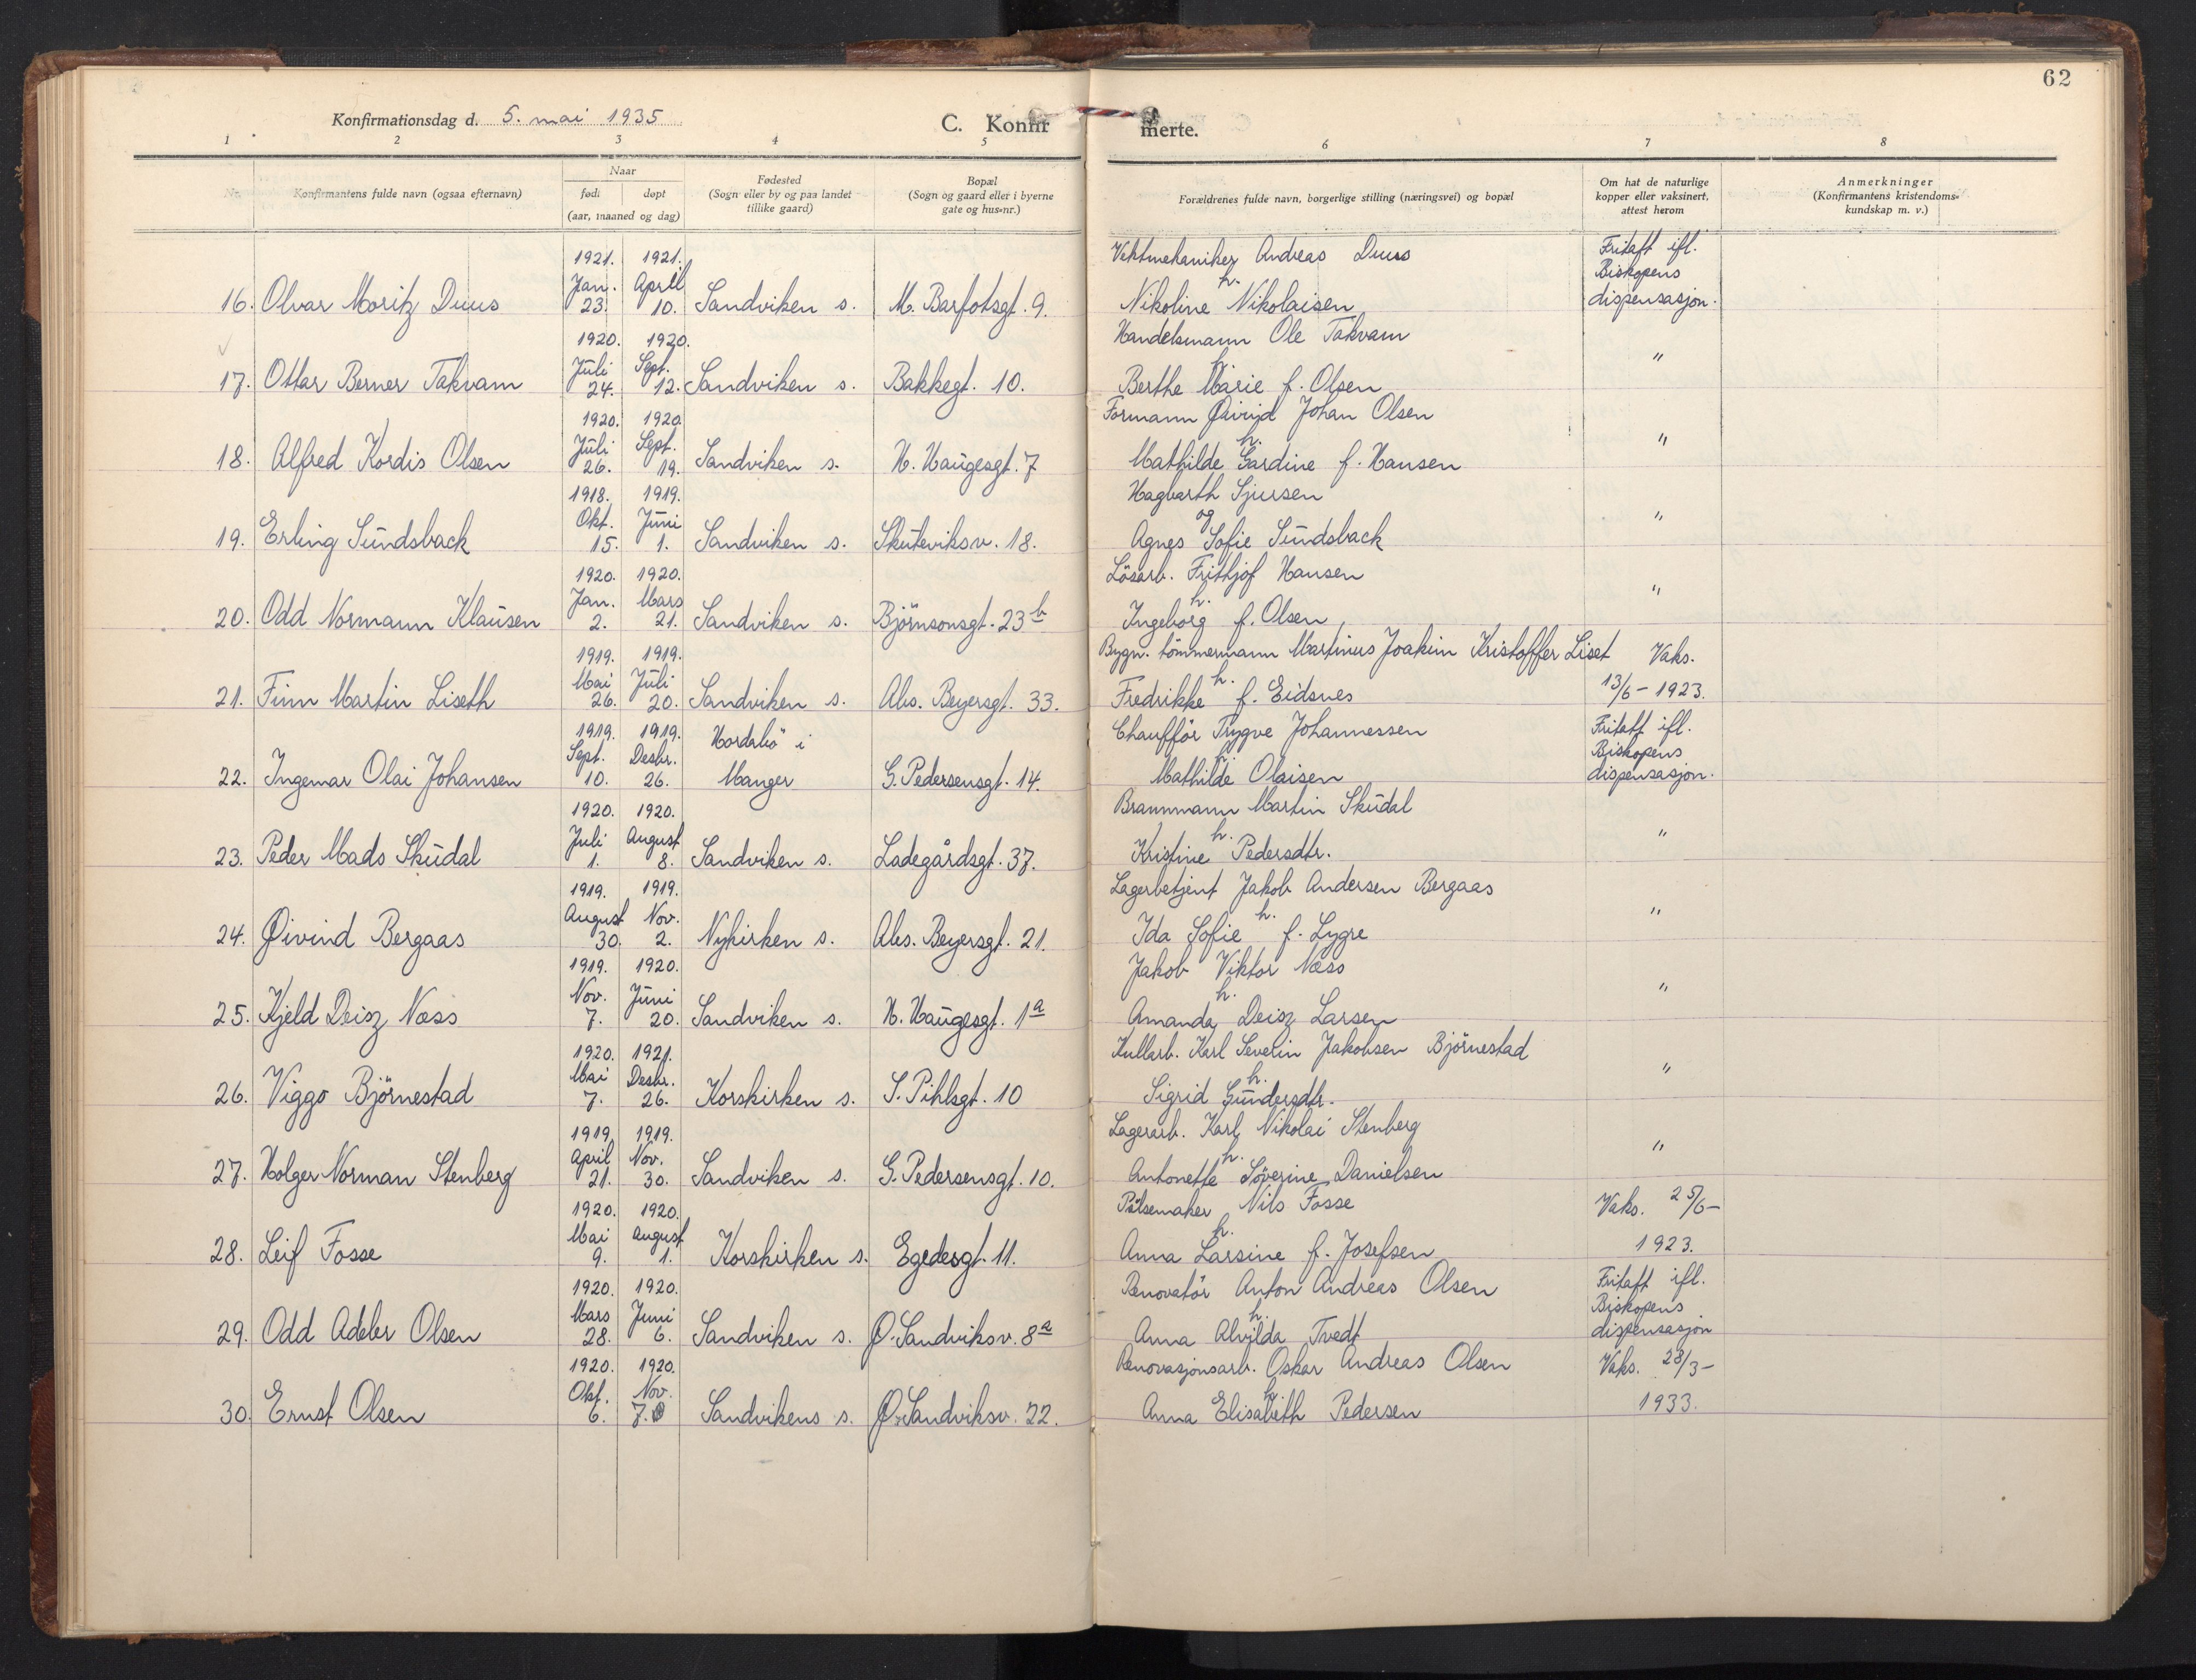 62
Konfirmationsdag d. 5. mai 1935
C. Konfir merte.
1 2 3 4 5 6 7 8
Nr.
Konfirmantens fulde navn (ogsaa efternavn)
Naar
født døpt
(aar, maaned og dag)
Fødested
(Sogn eller by og paa landet
tillike gaard)
Bopæl
(Sogn og gaard eller i byerne
gate og hus-nr.)
Forældrenes fulde navn, borgerlige stilling (næringsvei) og bopæl
Om hat de naturlige
kopper eller vaksinert,
attest herom
Anmerkninger
(Konfirmantens kristendoms-
kundskap m. v.)
1921. 1921. Vektmekaniker Andreas Duus Fritatt ifl.
Jan. April h. Biskopens
16. Olvar Moritz Duus 23. 10. Sandviken s. M. Barfotsgt. 9. Nikoline Nikolaisen dispensasjon.
1920. 1920. Handelsmann Ole Takvam
Juli Sept. h. "
17. Ottar Berner Takvam 24. 12. Sandviken s. Bakkegt. 10. Berthe Marie f. Olsen
1920. 1920. Formann Øivind Johan Olsen
Juli Sept. h. "
18. Alfred Kordis Olsen 26. 19. Sandviken s. H. Haugesgt. 7 Mathilde Gardine f. Hansen
1918. 1919. Hagbarth Sjursen
Okt. Juni og "
19. Erling Sundsback 15. 1. Sandviken s. Skuteviksv. 18. Agnes Sofie Sundsback
1920. 1920. Lösarb. Frithjof Hansen
Jan. Mars h. "
20. Odd Normann Klausen 2. 21. Sandviken s. Björnsonsgt. 23 b Ingeborg f. Olsen
1919. 1919. Bygn. tömmermann Martinus Joakim Kristoffer Liset Vaks.
Mai Juli h. 13/6 - 1923.
21. Finn Martin Liseth 26. 20. Sandviken s. Abs. Beyersgt. 33. Fredrikke f. Eidsnes
1919. 1919. Hordabö i Chaufför Trygve Johannessen Fritatt ifl.
Sept. Desbr. h. Biskopens
22. Ingemar Olai Johansen 10. 26. Manger G. Pedersensgt. 14. Mathilde Olaisen dispensasjon.
1920. 1920. Brannmann Martin Skudal
Juli August h. "
23. Peder Mads Skudal 1. 8. Sandviken s. Ladegårdsgt. 37. Kristine Pedersdtr.
1919. 1919. Lagerbetjent Jakob Andersen Bergaas
August Nov. h. "
24. Øivind Bergaas 30. 2. Nykirken s. Abs. Beyersgt. 21. Ida Sofie f. Lygre
1919. 1920. Jakob Viktor Næss
Nov. Juni h. "
25. Kjeld Deisz Næss 7. 20. Sandviken s. H. Haugesgt. 1 a Amanda Deisz Larsen
1920. 1921. Kullarb. Karl Severin Jakobsen Björnestad
Mai Desbr. h. "
26. Viggo Björnestad 7. 26. Korskirken s. S. Pihlsgt. 10 Sigrid Gundersdtr.
1919. 1919. Lagerarb. Karl Nikolai Stenberg
April Nov. h. "
27. Holger Norman Stenberg 21. 30. Sandviken s. G. Pedersensgt. 10. Antonette Söverine Danielsen
1920. 1920. Pölsemaker Nils Fosse Vaks. 25/6 -
Mai August h.
28. Leif Fosse 9. 1. Korskirken s. Egedesgt. 11. Anna Larsine f. Josefsen 1923.
1920. 1920. Renovatör Anton Andreas Olsen Fritatt ifl.
Mars Juni h. Biskopens
29. Odd Adeler Olsen 28. 6. Sandviken s. Ø. Sandviksv. 8 a Anna Alvilda Tvedt dispensasjon
1920. 1920. Renovasjonsarb. Oskar Andreas Olsen Vaks. 28/3 -
Okt. Nov. h.
30. Ernst Olsen 6. 7. Sandvikens s. Ø. Sandviksv. 22. Anna Elisabeth Pedersen 1933.